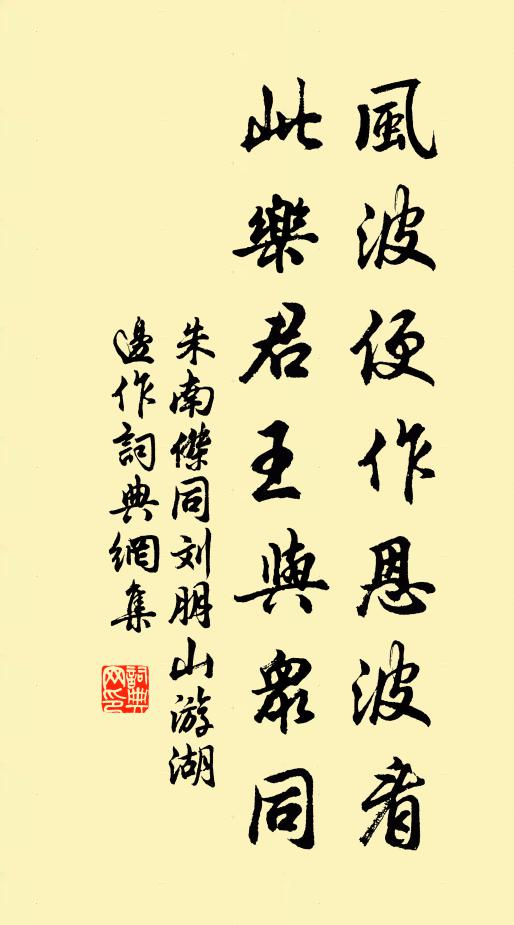 風波便作恩波看
此樂君王與眾同
朱南傑同刘朋山游湖
邊作詞典網集
詞典
网印